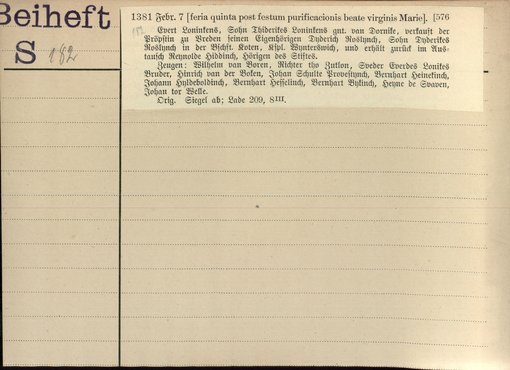 Beiheft
S 182
1381 Febr. 7 [feria quinta post festum purificacionis beate virginis Marie]. [576
Evert Loninkens, Sohn Thiderikes Loninkens gnt. van Dornike, verkauft der
Pröpstin zu Vreden seinen Eigenhörigen Dyderich Roslynch, Sohn Dyderikes
Roslynch in der Bschft. Koten, Kspl. Wynterswich, und erhält zurück im Aus-
tausch Reynolde Hiddinch, Hörigen des Stiftes.
Zeugen: Wilhelm van Voren, Richter tho Zutlon, Sveder Everdes Lonikes
Bruder, Hinrich van der Voken, Johan Schulte Provestynch, Bernhart Heinekinch,
Johann Hyldeboldinch, Bernhart Hesselinch, Bernhart Vykinch, Heyne de Svaven,
Johan tor Welle.
Orig. Siegel ab; Lade 209, 8III.